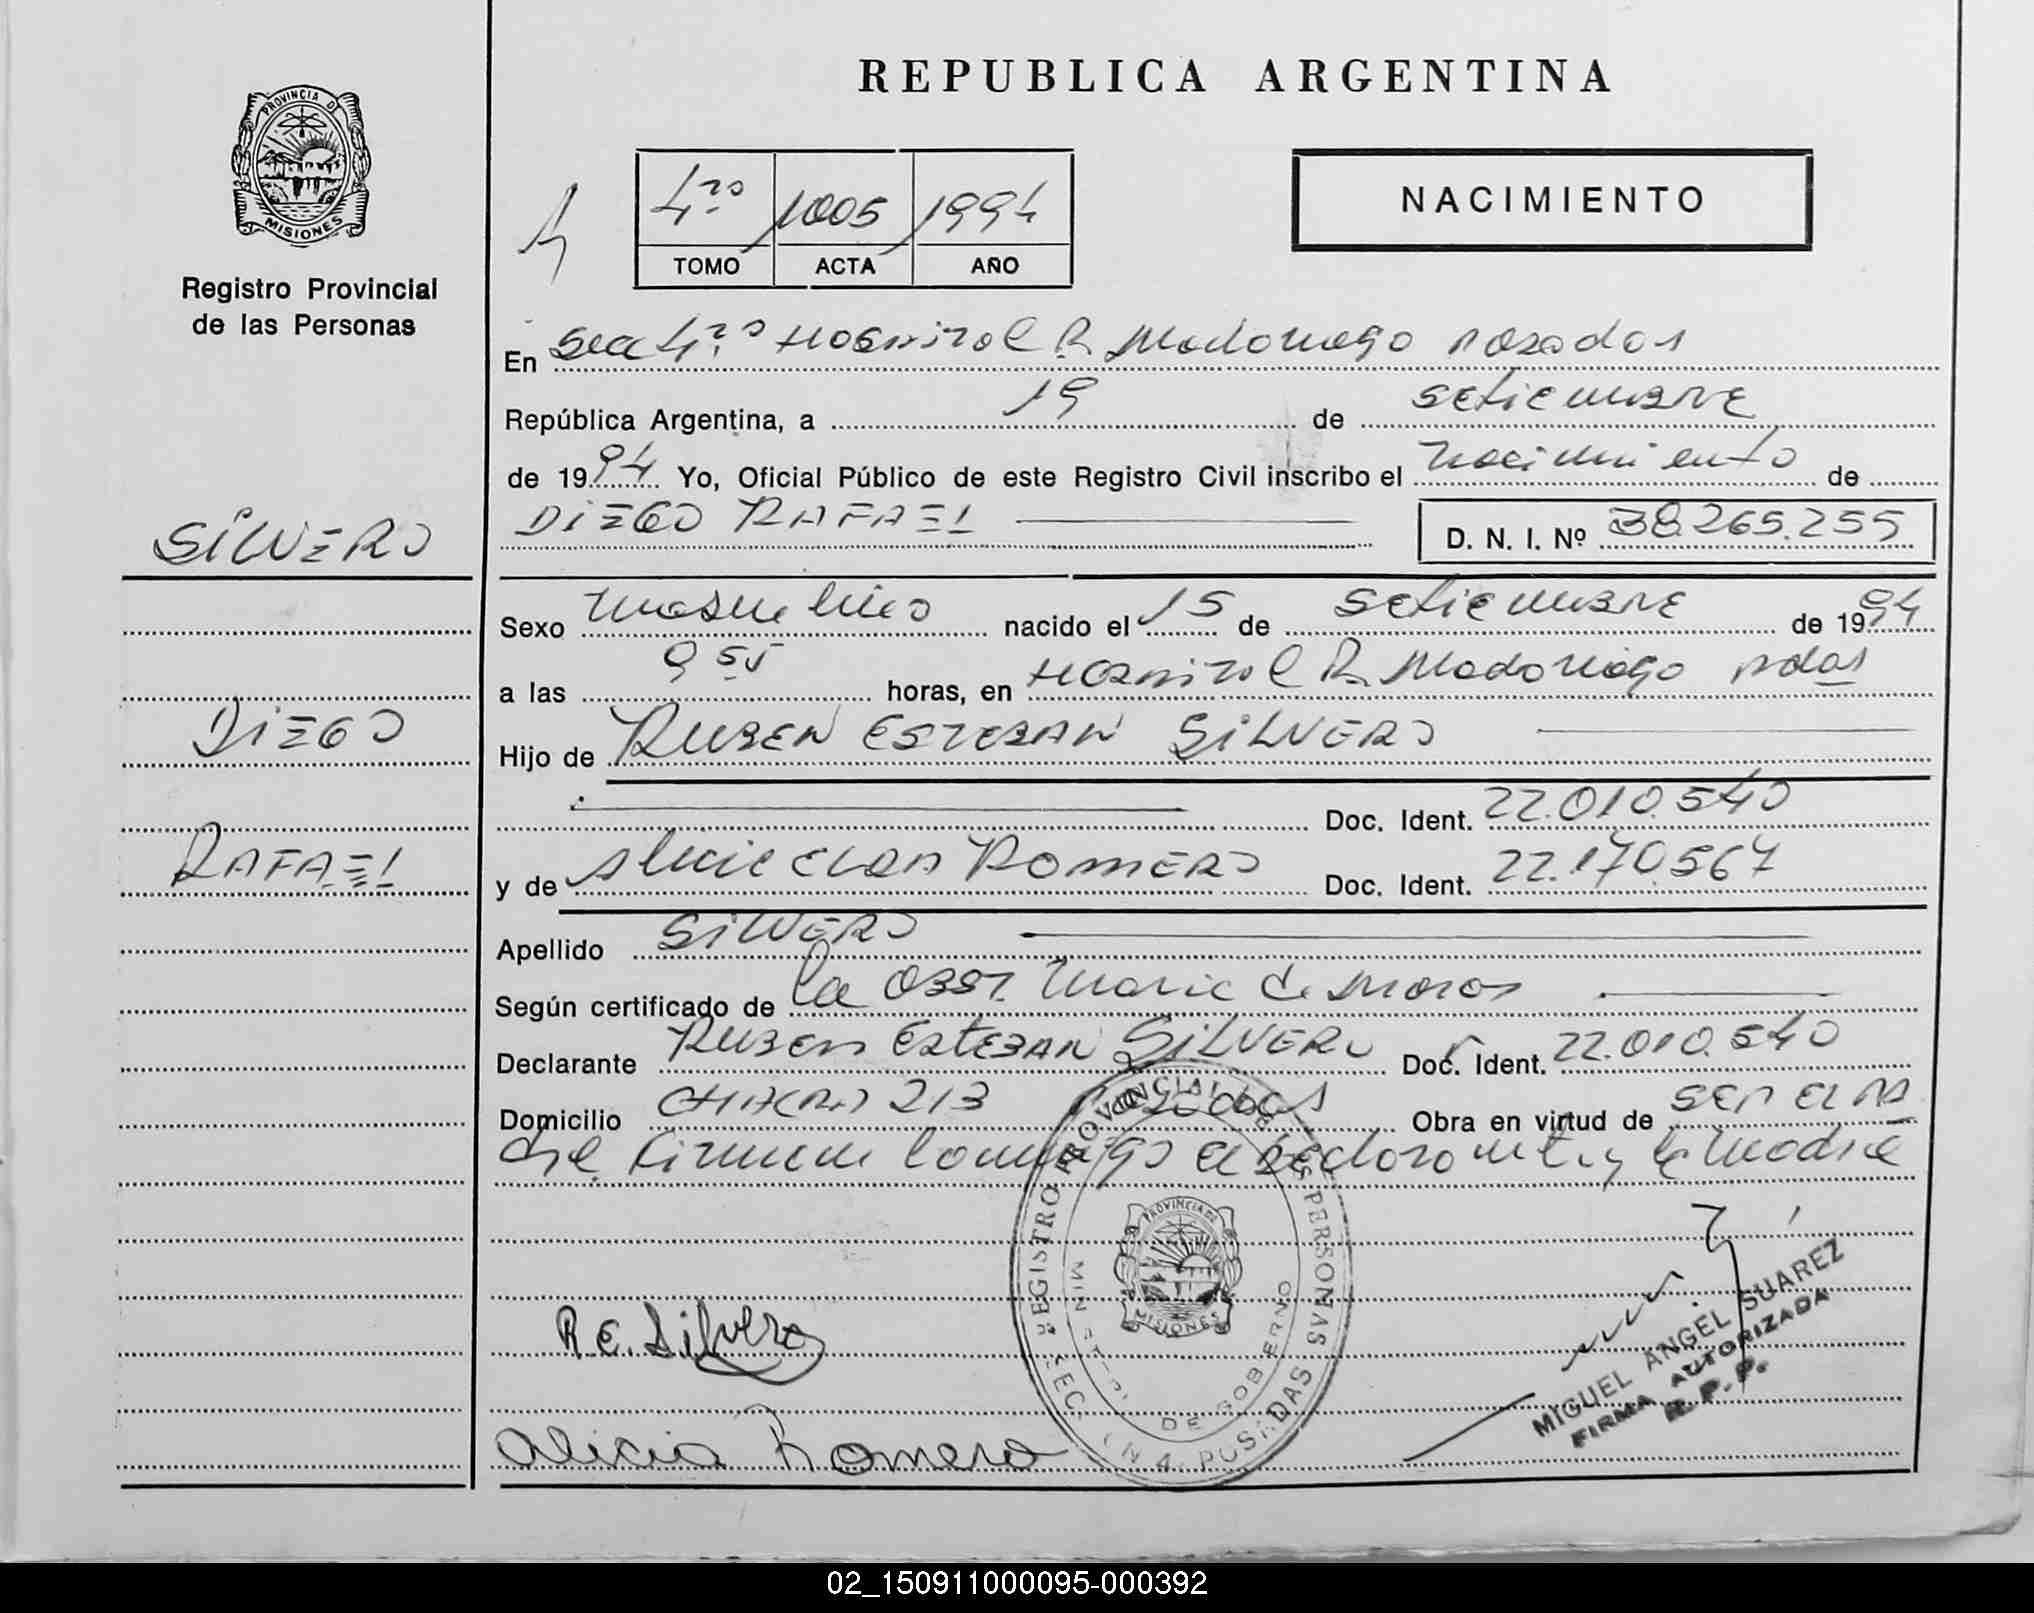 REPUBLICA ARGENTINA
PROVINCIA DE
MISIONES
Registro Provincial
de las Personas
4ro 1005 1994
TOMO ACTA AÑO
NACIMIENTO
En Sec 4ta Hospital R. Madariaga Posadas
República Argentina, a 19 de setiembre
de 1994 Yo, Oficial Público de este Registro Civil inscribo el nacimiento de
SILVERO
DIEGO RAFAEL
D. N. I. Nº 38.265.255
Sexo masculino nacido el 15 de setiembre de 1994
a las 9 55 horas, en Hospital R. Madariaga pdas
DIEGO
Hijo de RUBEN ESTEBAN SILVERO
Doc. Ident. 22.010.540
RAFAEL
y de Alicia ROMERO Doc. Ident. 22.170.567
Apellido SILVERO
Según certificado de la Obst. Maria
Declarante RUBEN ESTEBAN SILVERO Doc. Ident. 22.010.540
Domicilio CHACRA 213 Posadas Obra en virtud de SER EL PA
dre Firman conmigo el declarante y la madre
R. E. Silvero
Alicia Romero
REGISTRO PROVINCIAL DE LAS PERSONAS
PROVINCIA DE
MISIONES
DE GOBIERNO
POSADAS
MIGUEL ANGEL SUAREZ
FIRMA AUTORIZADA
R.P.P.
02_150911000095-000392